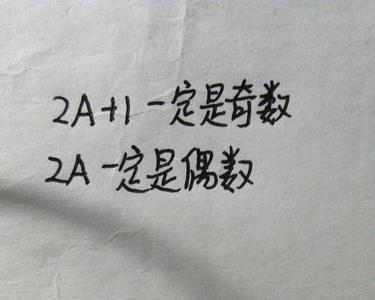 2A+1一定是奇数
2A一定是偶数